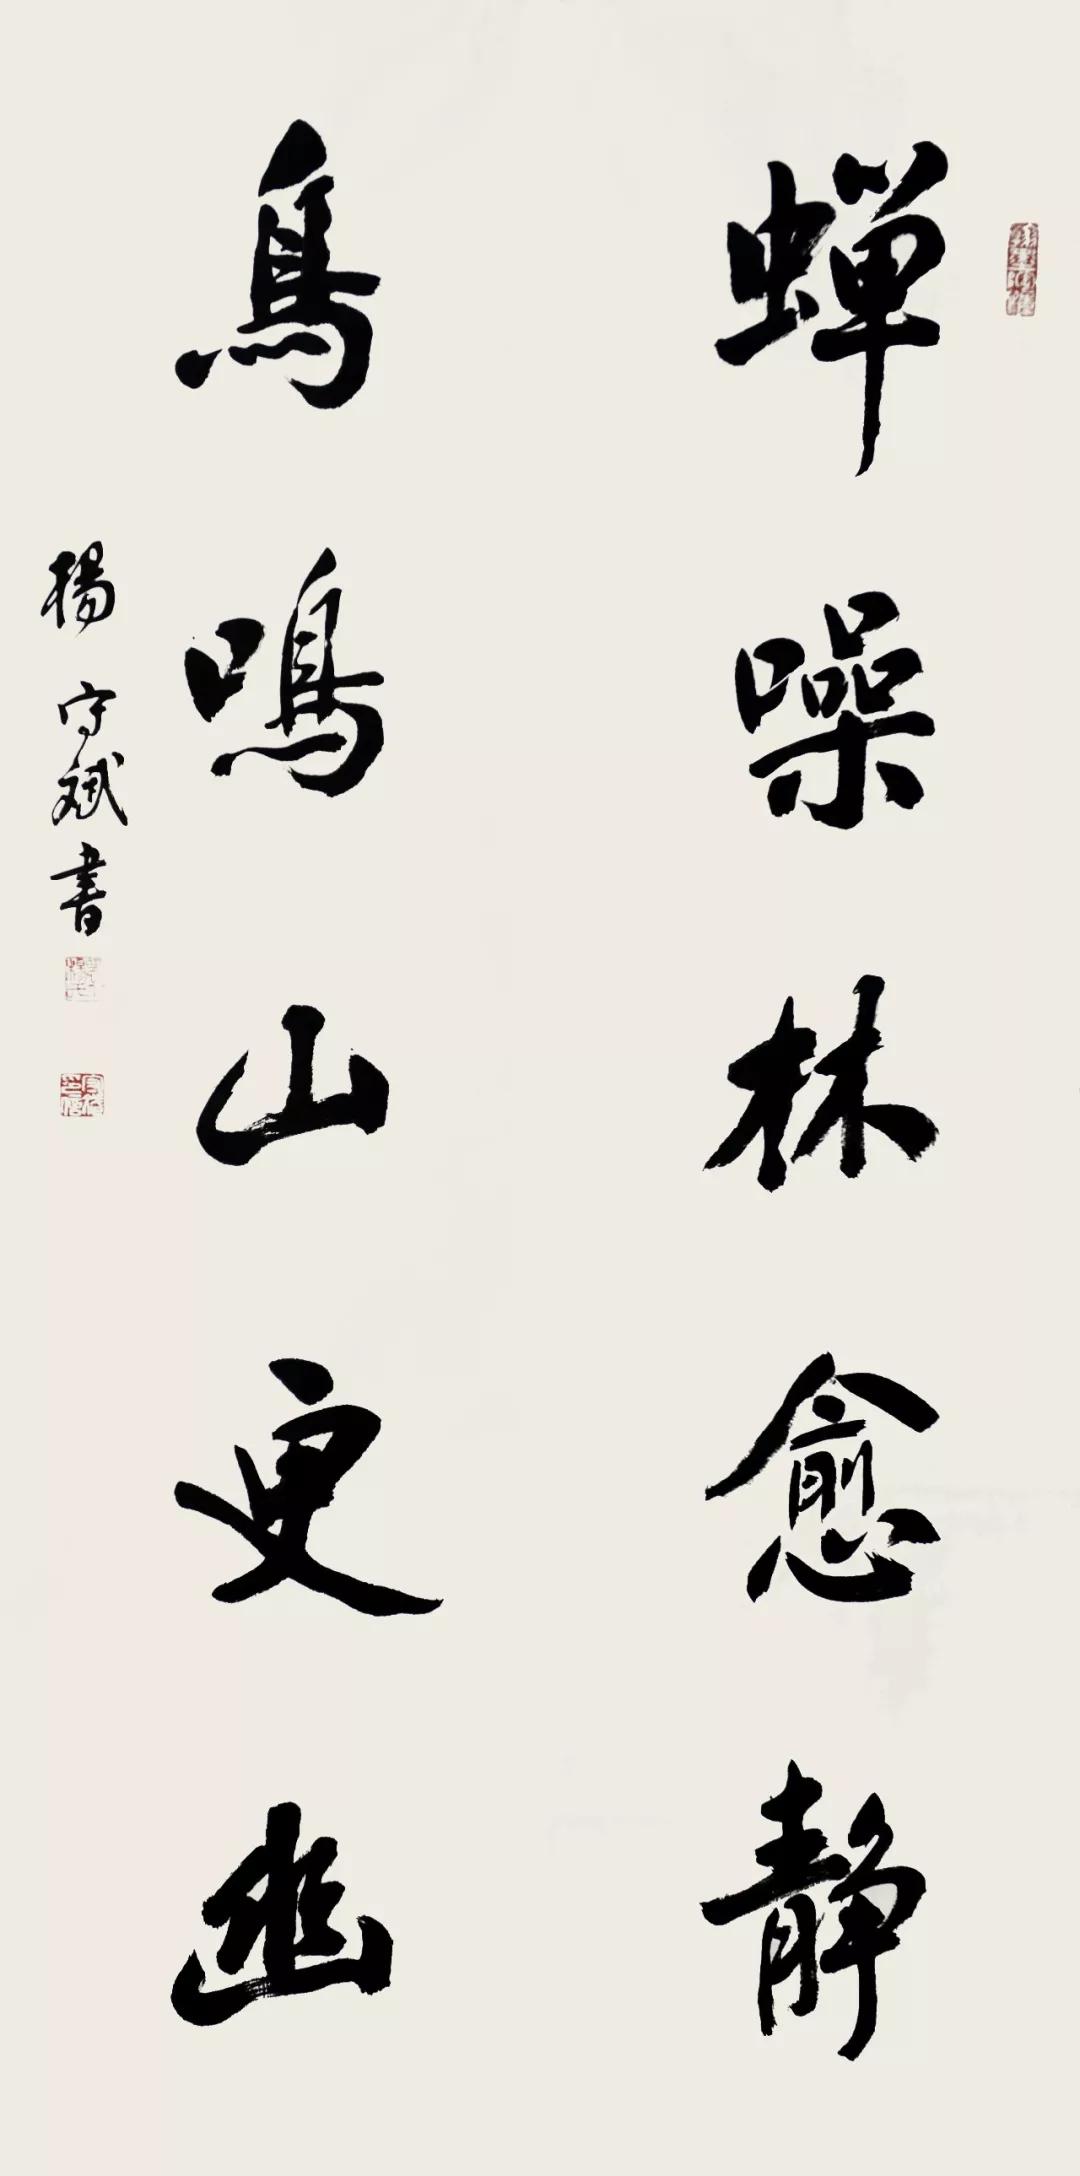 蝉噪林愈静
鳥鳴山更幽
楊守斌書